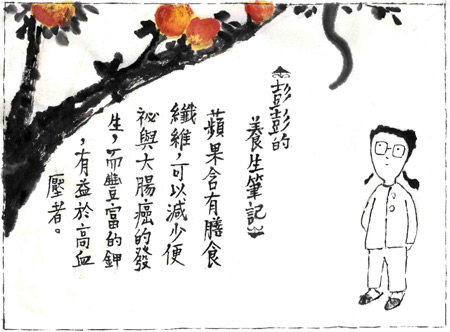 《彭彭的
養生筆記》
蘋果含有膳食
纖維，可以減少便
祕與大腸癌的發
生，而豐富的鉀
，有益於高血
壓者。